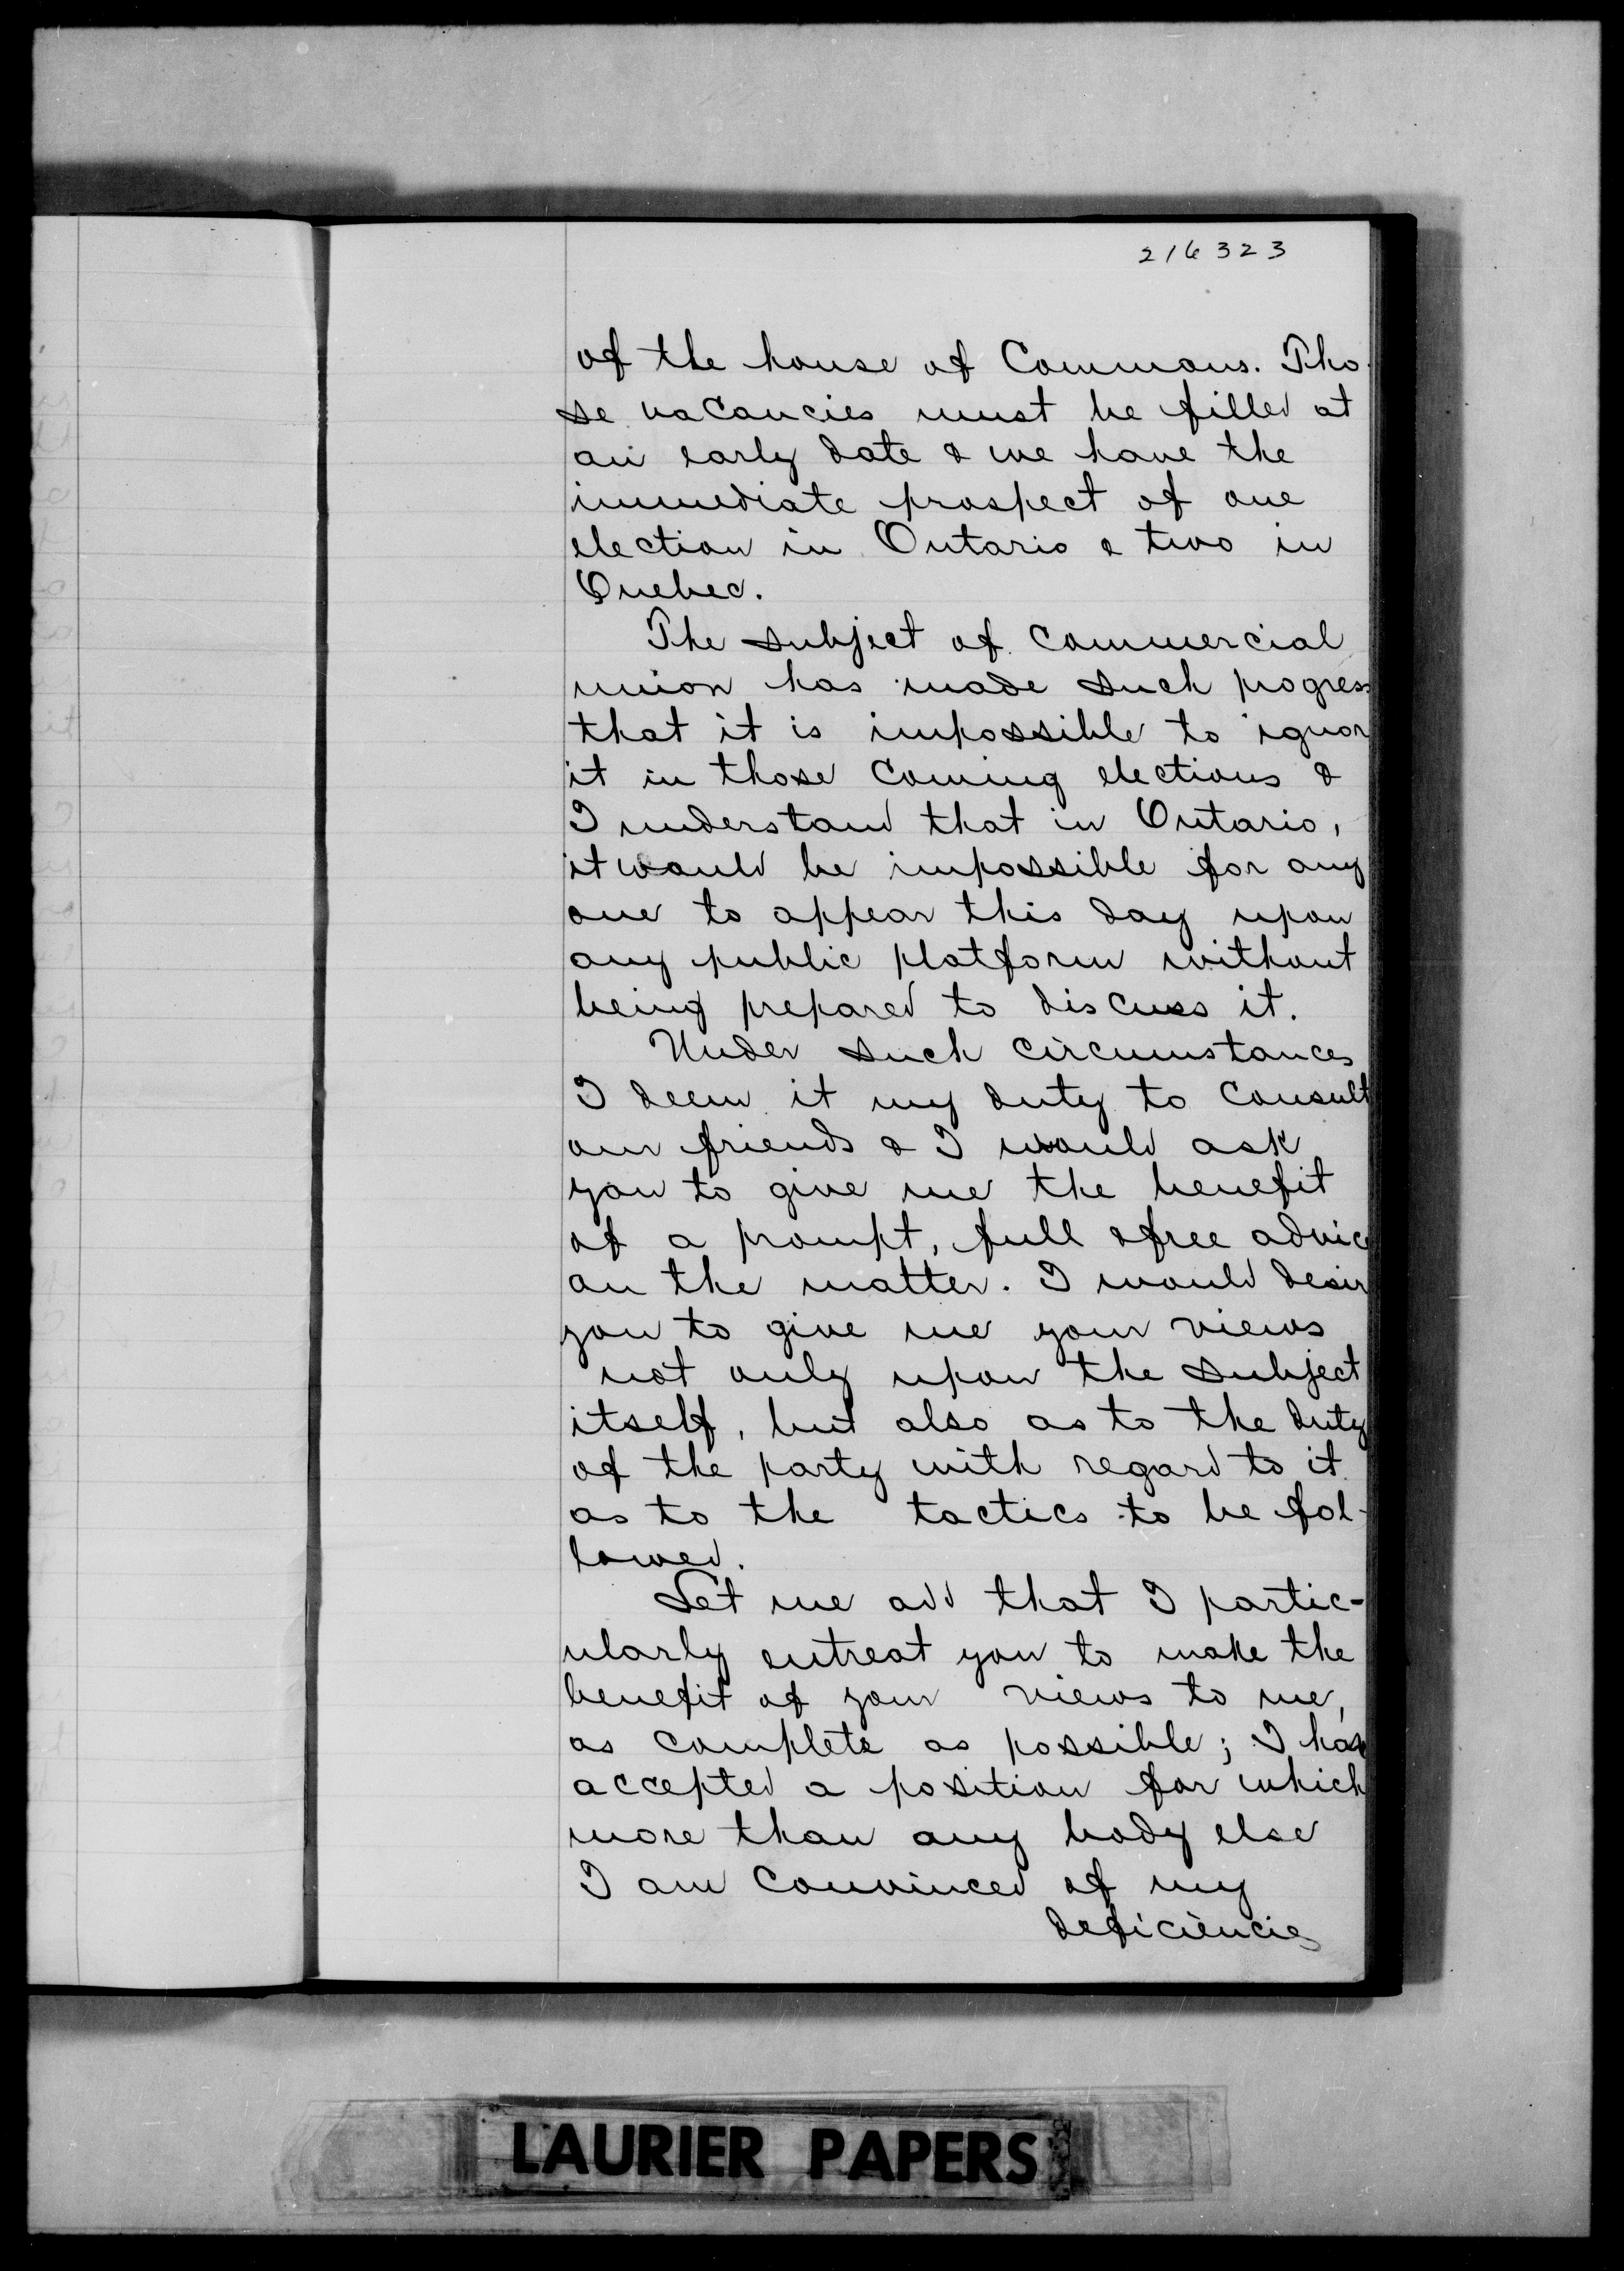 216323
of the house of Commons. Tho-
se vacancies must be filled at
an early date & we have the
immediate prospect of one
election in Ontario & two in
Quebec.
The subject of commercial
union has made such progress
that it is impossible to ignor
it in those coming elections &
I understand that in Ontario,
it would be impossible for any
one to appear this day upon
any public platform without
being prepared to discuss it.
Under such circumstances
I deem it my duty to consult
our friends & I would ask
you to give me the benefit
of a prompt, full & free advice
on the matter. I would desir
you to give me your views
not only upon the subject
itself, but also as to the duty
of the party with regard to it
as to the tactics to be fol-
lowed.
Let me add that I partic-
ularly entreat you to make the
benefit of your views to me,
as complete as possible; I have
accepted a position for which
more than any body else
I am convinced of my
deficiencies
LAURIER PAPERS